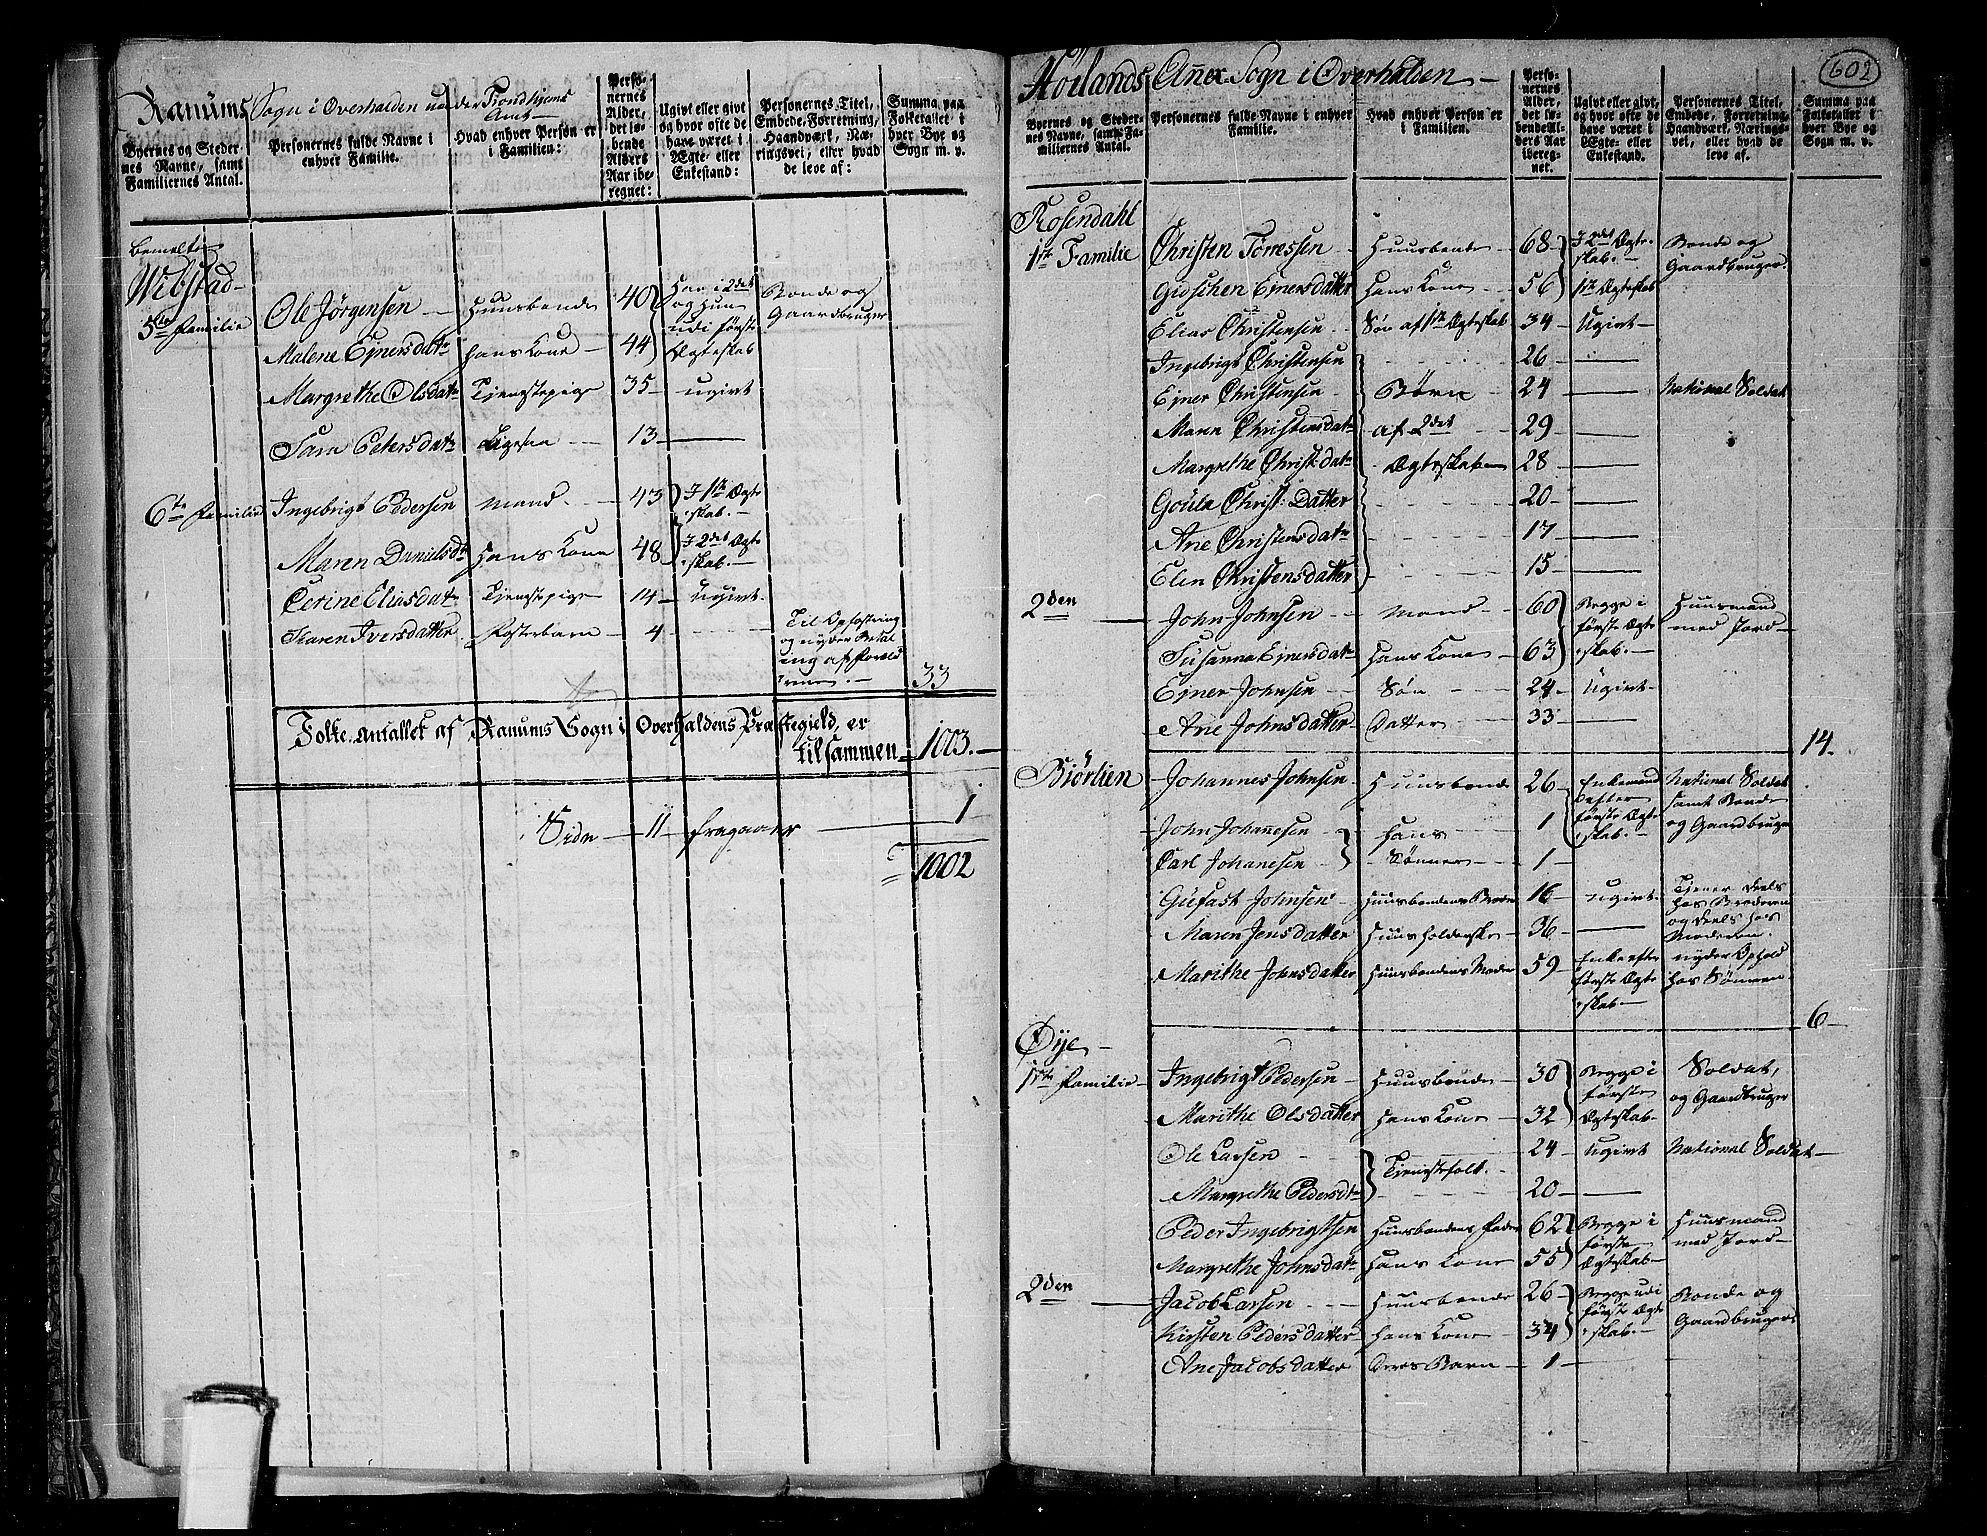 Ranums Sogn i Overhalden under Trondhjems Amt
Byernes og Stedernes Navne, samt Familiernes Antal.
Personernes fulde Navne i enhver Familie.
Hvad enhver Person er i Familien:
Personernes Alder, det løbende Alders Aar iberegnet:
Ugivt eller givt og hvor ofte de have været i Ægte- eller Enkestand:
Personernes Titel, Embede, Forretning, Haandværk, Næringsvei, eller hvad de leve af:
Summa paa Folketallet i hver Bye og Sogn m. v.
bemelte
Wibstad
5te Familie Ole Jörgensen Huusbonde 40 Han i 2det og hun udi første Ægteskab Bonde og Gaardbruger
Malene Ejnersdatr hans Kone 44
Margrethe Olsdatr Tjenestepige 35 ugivt
Sara Petersdatr Ligesaa 13 —
6te Familie Ingebrigt Pedersen Mand 43 I 1te Ægteskab.
Maren Danielsdtr Hans Kone 48 I 2det Ægteskab.
Cerine Eliasdatr Tjenestepige 14 ugivt.
Karen Iversdatter Fosterbarn 4 Til Opfostring og nyder Betaling af Forældrene. 33
Folke Antallet af Ranums Sogn i Overhaldens Præstegield, er
tilsammen 1003.
Siden 11 fragaaer 1
1002
602
Höilands Anex Sogn i Overhalden
Byernes og Stedernes Navne, samt Familiernes Antal.
Personernes fulde Navne i enhver Familie.
Hvad enhver Person er i Familien.
Personernes Alder, det løbende Alders Aar iberegnet.
Ugivt eller givt, og hvor ofte de have været i Ægte- eller Enkestand.
Personernes Titel, Embede, Forretning, Haandværk, Næringsvei, eller hvad de leve af.
Summa paa Folketallet i hver Bye og Sogn m. v.
Rosendahl
1te Familie Christen Torressen Huusbonde 68 I 2det Ægteskab. Bonde og Gaardbruger.
Giøschen Ejnersdatter hans Kone 56 1te Ægteskab
Elias Christensen Søn af 1te Ægteskab 34 Ugivt
Ingebrigt Christensen 26 —
Ejner Christensen Børn 24 — National Soldat
Maren Christensdatr af 2det 29 —
Margrethe Christ: datr Ægteskab 28 —
Goula Christ: Datter 20 —
Ane Christensdatr 17 —
Elen Christensdatter 15 —
2den John Johnsen Mand 60 Begge i første Ægteskab. Huusmand med Jord
Susanna Ejnersdatr hans Kone 63
Ejner Johnsen Søn 24 Ugivt
Ane Johnsdatter Datter 33 —
14.
Biörlien Johannes Johnsen Huusbonde 26 Enkemand efter første Ægteskab. National Soldat samt Bonde og Gaardbruger
John Johanesen hans 1
Carl Johanesen Sønner 1
Gufast Johnsen Huusbondens Broder 16 ugivt Tjener deels hos Broderen og deels hos Moderen.
Maren Jensdatter Huusholderske 36 —
Marithe Johnsdatter Huusbondens Moder 59 Enke efter første Ægteskab nyder Ophold hos Sønnen
6
Øye
1te Familie Ingebrigt Pedersen Huusbonde 30 Begge i første Ægteskab Soldat, og Gaardbruger
Marithe Olsdatter hans Kone 32
Ole Larsen 24 ugivt National Soldat
Tjenestefolk.
Margrethe Pedersdtr 20 —
Peder Ingebrigtsen Huusbondens Fader 62 Begge i første Ægteskab Huusmand med Jord
Margrethe Johnsdatr hans Kone 55
2den Jacob Larsen Huusbonde 26 Begge udi første Ægteskab. Bonde og Gaardbruger
Kirsten Pedersdatter hans Kone 34
Ane Jacobsdatter deres Barn 1